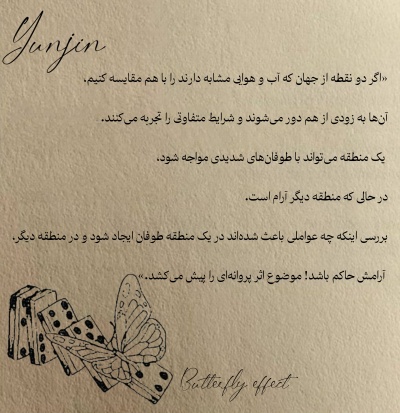 Yunjin
«اگر دو نقطه از جهان که آب و هوایی مشابه دارند را با هم مقایسه کنیم،
آن‌ها به زودی از هم دور می‌شوند و شرایط متفاوتی را تجربه می‌کنند.
یک منطقه می‌تواند با طوفان‌های شدیدی مواجه شود،
در حالی که منطقه دیگر آرام است.
بررسی اینکه چه عواملی باعث شده‌اند در یک منطقه طوفان ایجاد شود و در منطقه دیگر،
آرامش حاکم باشد! موضوع اثر پروانه‌ای را پیش می‌کشد.»
Butterfly effect